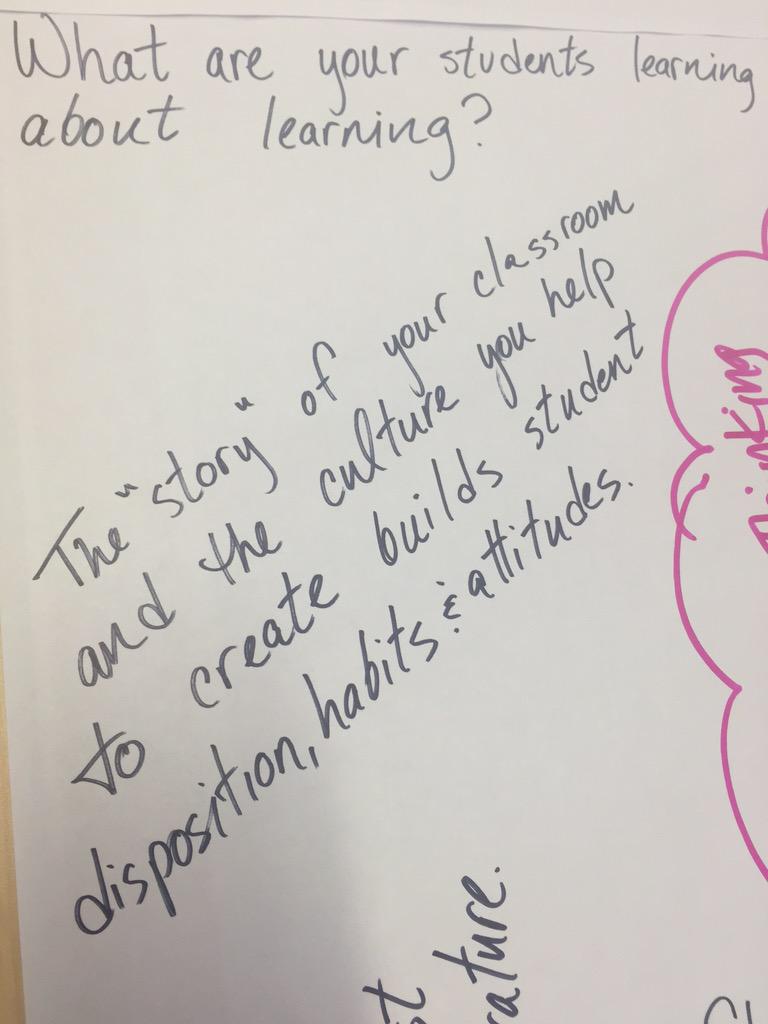 What are your students learning
about learning?
The "story" of your classroom
and the culture you help
to create builds student
disposition, habits & attitudes.